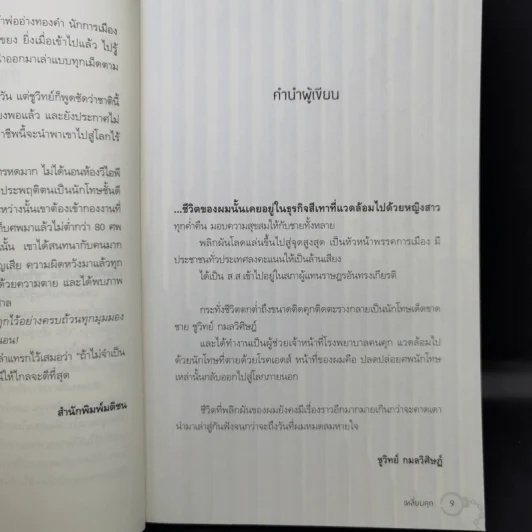 าพ่ออ่างทองคำ นักการเมือง
ขยง ยิ่งเมื่อเข้าไปแล้ว ไปรู้
าออกมาเล่าแบบทุกเม็ดตาม
วัน แต่ชูวิทย์ก็พูดชัดว่าชาตินี้
ยงพอแล้ว และยังประกาศไม่
าชีพนี้จะนำพาเขาไปสู่โลกไร้
ารหดมาก ไม่ได้นอนห้องวีไอพี
ประพฤติตนเป็นนักโทษชั้นดี
หว่างนั้นเขาต้องเข้ากองงานที่
กับศพมาแล้วไม่ต่ำกว่า 80 ศพ
นั้น เขาได้สนทนากับคนมาก
ญเสีย ความผิดหวังมาแล้วทุก
ด้วยความตาย และได้พบภาพ
าล
ุกไว้อย่างครบถ้วนทุกมุมมอง
อน!
ล่าแทรกไว้เสมอว่า "ถ้าไม่จำเป็น
ให้ไกลจะดีที่สุด
สำนักพิมพ์มติชน
คำนำผู้เขียน
...ชีวิตของผมนั้นเคยอยู่ในธุรกิจสีเทาที่แวดล้อมไปด้วยหญิงสาว
ทุกค่ำคืน มอบความสุขสมให้กับชายทั้งหลาย
พลิกผันโลดแล่นขึ้นไปสู่จุดสูงสุด เป็นหัวหน้าพรรคการเมือง มี
ประชาชนทั่วประเทศลงคะแนนให้เป็นล้านเสียง
ได้เป็น ส.ส.เข้าไปอยู่ในสภาผู้แทนราษฎรอันทรงเกียรติ
กระทั่งชีวิตตกต่ำถึงขนาดติดคุกติดตะรางกลายเป็นนักโทษเด็ดขาด
ชาย ชูวิทย์ กมลวิศิษฎ์
และได้ทำงานเป็นผู้ช่วยเจ้าหน้าที่โรงพยาบาลคนคุก แวดล้อมไป
ด้วยนักโทษที่ตายด้วยโรคเอดส์ หน้าที่ของผมคือ ปลดปล่อยศพนักโทษ
เหล่านั้นกลับออกไปสู่โลกภายนอก
ชีวิตที่พลิกผันของผมยังคงมีเรื่องราวอีกมากมายเกินกว่าจะคาดเดา
นำมาเล่าสู่กันฟังจนกว่าจะถึงวันที่ผมหมดลมหายใจ
ชูวิทย์ กมลวิศิษฎ์
เหลี่ยมคุก 9